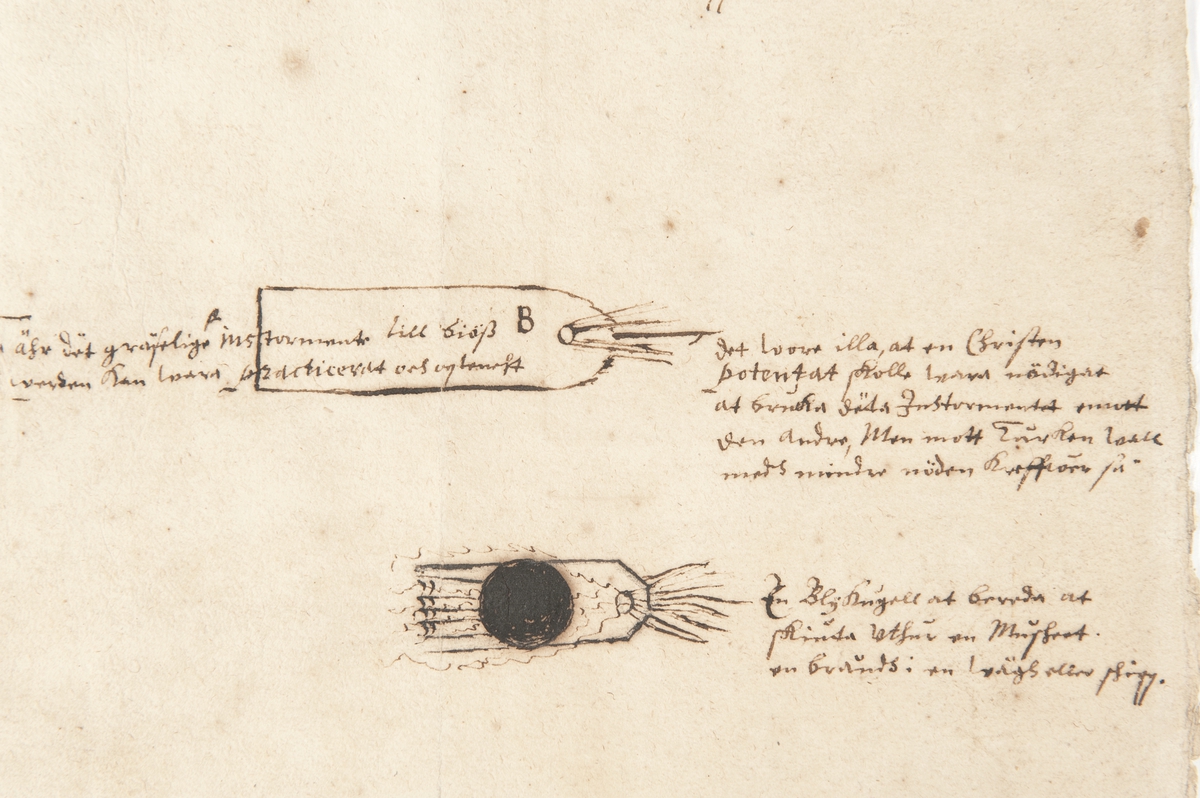 ähr dät gräselige instormente till biöß B
werden kan wara practicerat och opteneht
det wore illa, at en Christen
potentat skolle wara nödigat
at bruka däta Instormentet emott
den andre, Men mott Turken wall
medh mindre nöden kreffwer så
En Blykugell at bereda at
skiuta uthur en Musheet.
en brandh i en wägh eller shipp.